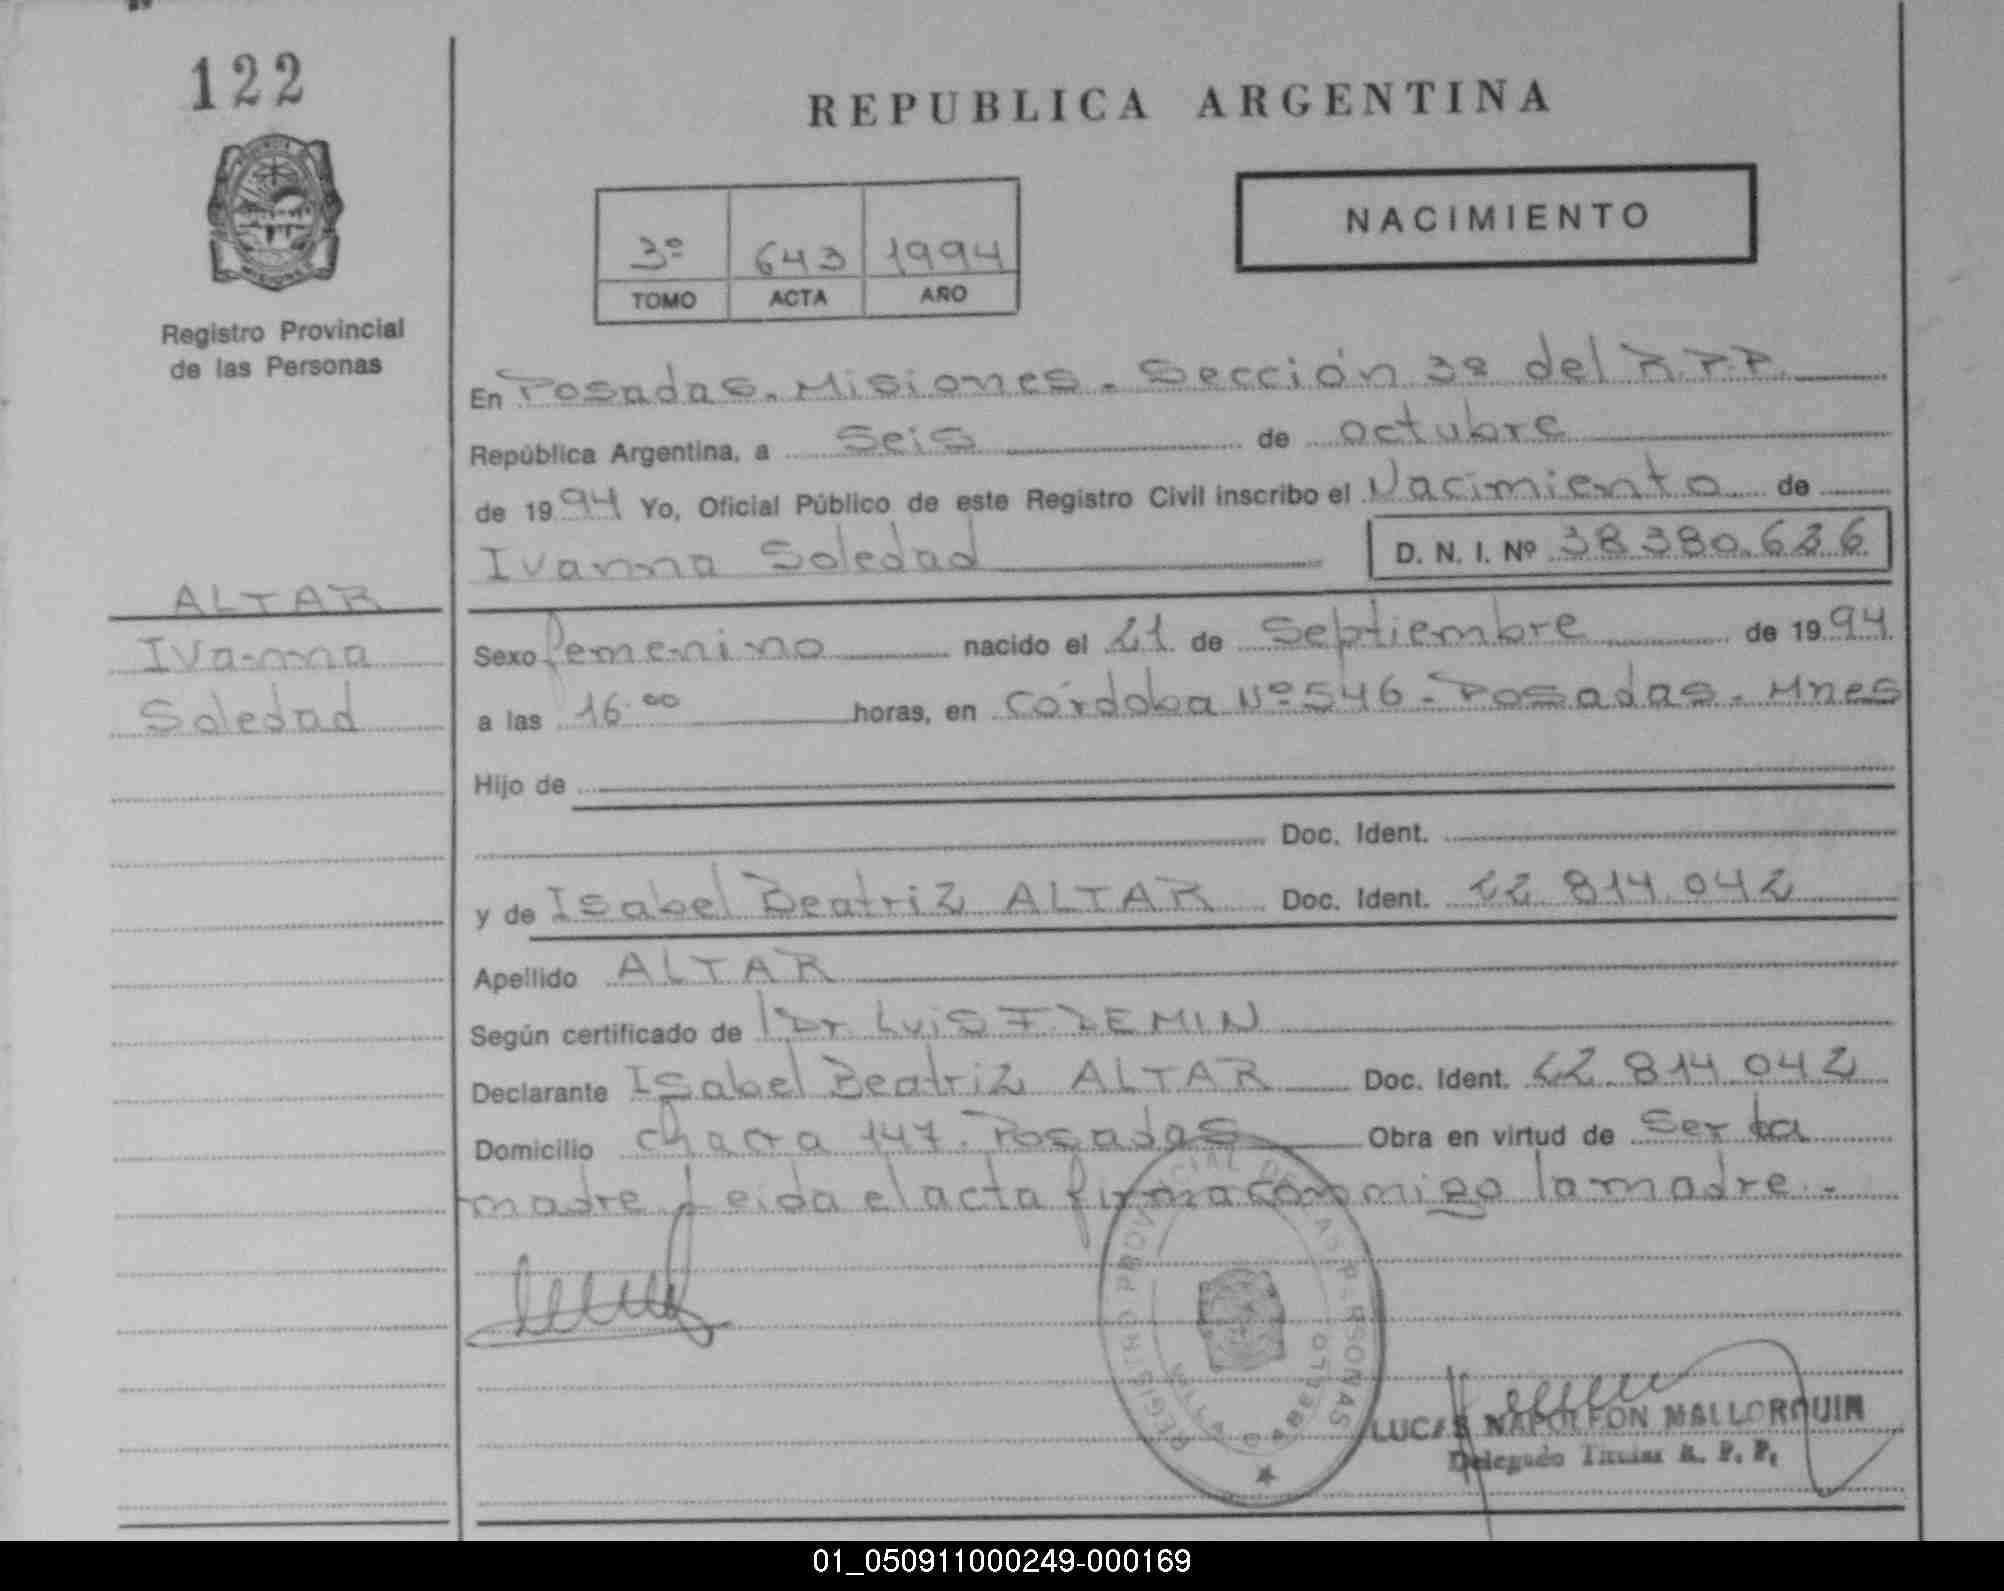 122
REPUBLICA ARGENTINA
NACIMIENTO
3º 643 1994
TOMO ACTA AÑO
Registro Provincial
de las Personas
En Posadas. Misiones. Sección 3ª del R.P.P.
República Argentina, a Seis de octubre
de 1994 Yo, Oficial Público de este Registro Civil inscribo el Nacimiento de
Ivanna Soledad D. N. I. Nº 38380.626
ALTAR
Ivanna
Soledad
Sexo femenino nacido el 21 de Septiembre de 1994
a las 16.00 horas, en Córdoba Nº 546 - Posadas - Mnes
Hijo de
Doc. Ident.
y de Isabel Beatriz ALTAR Doc. Ident. 22 814.042
Apellido ALTAR
Según certificado de Dr. Luis F. DEMIN
Declarante Isabel Beatriz ALTAR Doc. Ident. 22.814 042
Domicilio Chacra 147. Posadas Obra en virtud de Ser la
madre Leida el acta firma conmigo la madre.-
REGISTRO PROVINCIAL DE LAS PERSONAS
LUCAS NAPOLEON MALLORQUIN
Delegado Titular R. P. P.
01_050911000249-000169